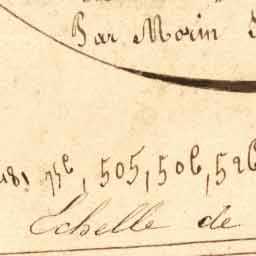 Par Morin
505, 506, 526
Echelle de